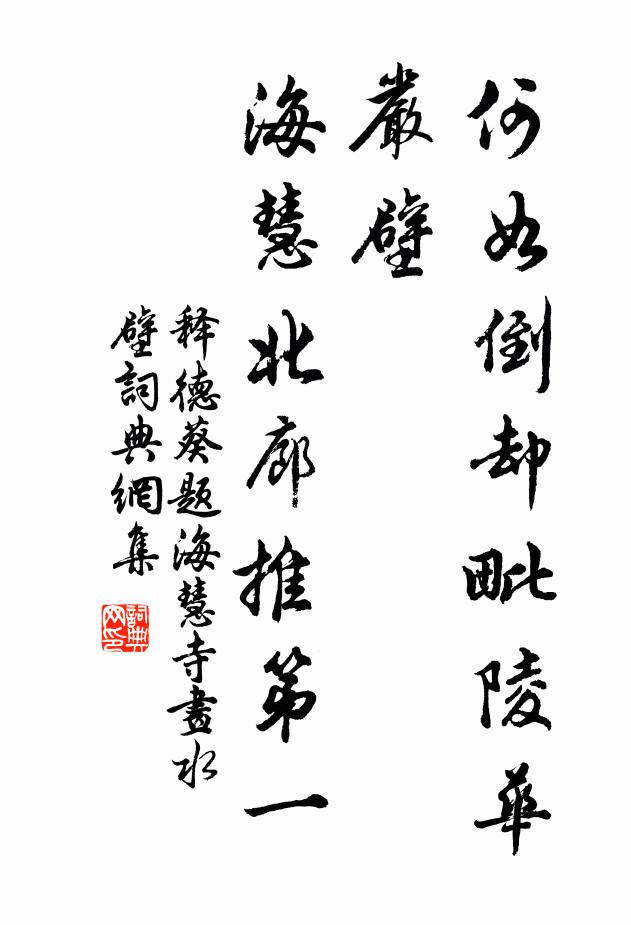 何如倒却毗陵華
嚴壁
海慧北廊推第一
释德葵题海慧寺畫水
壁詞典網集
詞典
网印